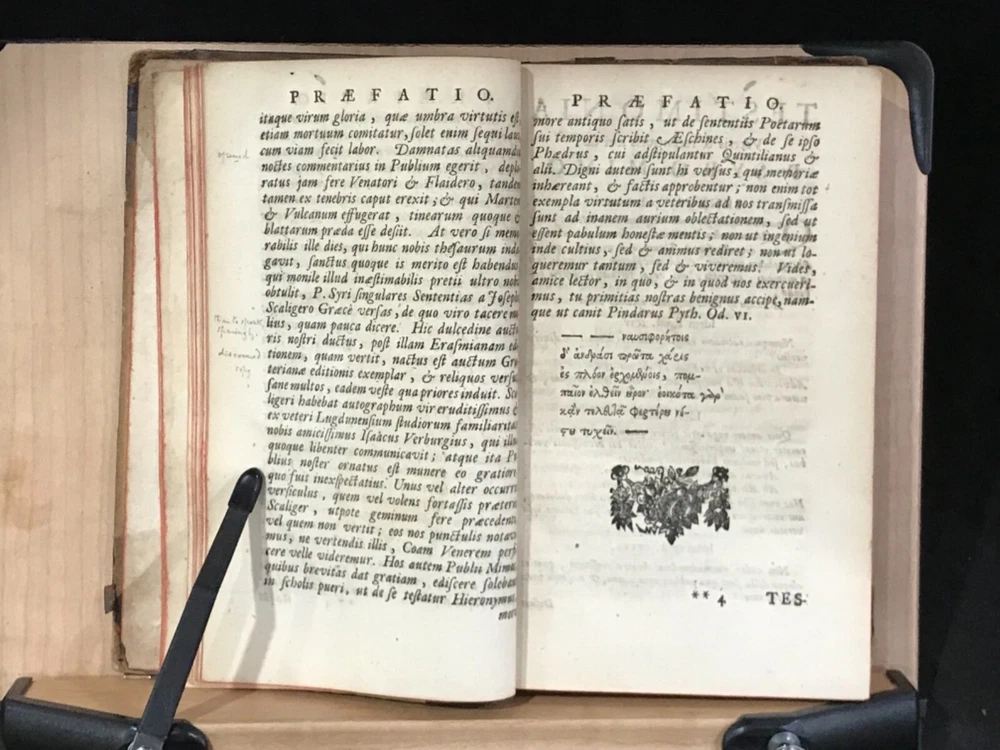 PRÆFATIO.
itaque virum gloria, quæ umbra virtutis est,
etiam mortuum comitatur, solet enim sequi lau
cum viam fecit labor. Damnatas aliquamdi
noctes commentarius in Publium egerit, deplo
ratus jam fere Venatori & Flaidero, tandem
tamen ex tenebris caput erexit; & qui Martem
& Vulcanum effugerat, tinearum quoque &
blattarum præda esse desiit. At vero si memo
rabilis ille dies, qui hunc nobis thesaurum indi
gavit, sanctus quoque is merito est habendus
qui monile illud inæstimabilis pretii ultro nobi
obtulit, P. Syri singulares Sententias a Joseph
Scaligero Græcè versas, de quo viro tacere m
lius, quam pauca dicere. Hic dulcedine aucto
ris nostri ductus, post illam Erasmianam ed
tionem, quam vertit, nactus est auctum Gru
terianæ editionis exemplar, & reliquos versu
sane multos, eadem veste qua priores induit. Sca
ligeri habebat autographum vir eruditissimus &
ex veteri Lugdunensium studiorum familiarita
nobis amicissimus Isaäcus Verburgius, qui illu
quoque libenter communicavit; atque ita Pu
blius noster ornatus est munere eo gratiore
quo fuit inexspectatius. Unus vel alter occurri
versiculus, quem vel volens fortassis præteri
Scaliger, utpote geminum fere præcedenti
vel quem non vertit; eos nos punctulis notav
mus, ne vertendis illis, Coam Venerem perfi
cere velle videremur. Hos autem Publii Mimos
quibus brevitas dat gratiam, ediscere soleban
in scholis pueri, ut de se testatur Hieronymus,
more
opened
discovered
copy
PRÆFATIO.
more antiquo satis, ut de sententiis Poëtarum
sui temporis scribit Æschines, & de se ipso
Phædrus, cui adstipulantur Quintilianus &
alii. Digni autem sunt hi versus, qui memoriæ
inhæreant, & factis approbentur; non enim tot
exempla virtutum a veteribus ad nos transmissa
sunt ad inanem aurium oblectationem, sed ut
essent pabulum honestæ mentis; non ut ingenium
inde cultius, sed & animus rediret; non ut lo-
queremur tantum, sed & viveremus. Vides,
amice lector, in quo, & in quod nos exercueri-
mus, tu primitias nostras benignus accipe, nam-
que ut canit Pindarus Pyth. Od. VI.
— — ναυσιφορήτοις
δ' ἀνδράσι πρῶτα χάρις
ἐς πλόον ἐρχομένοις, πομ-
παῖον ἐλθεῖν οὖρον· ἐοικότα γὰρ
κᾀν τελευτᾷ φερτέρου νό-
στου τυχεῖν. —
** 4 TES-